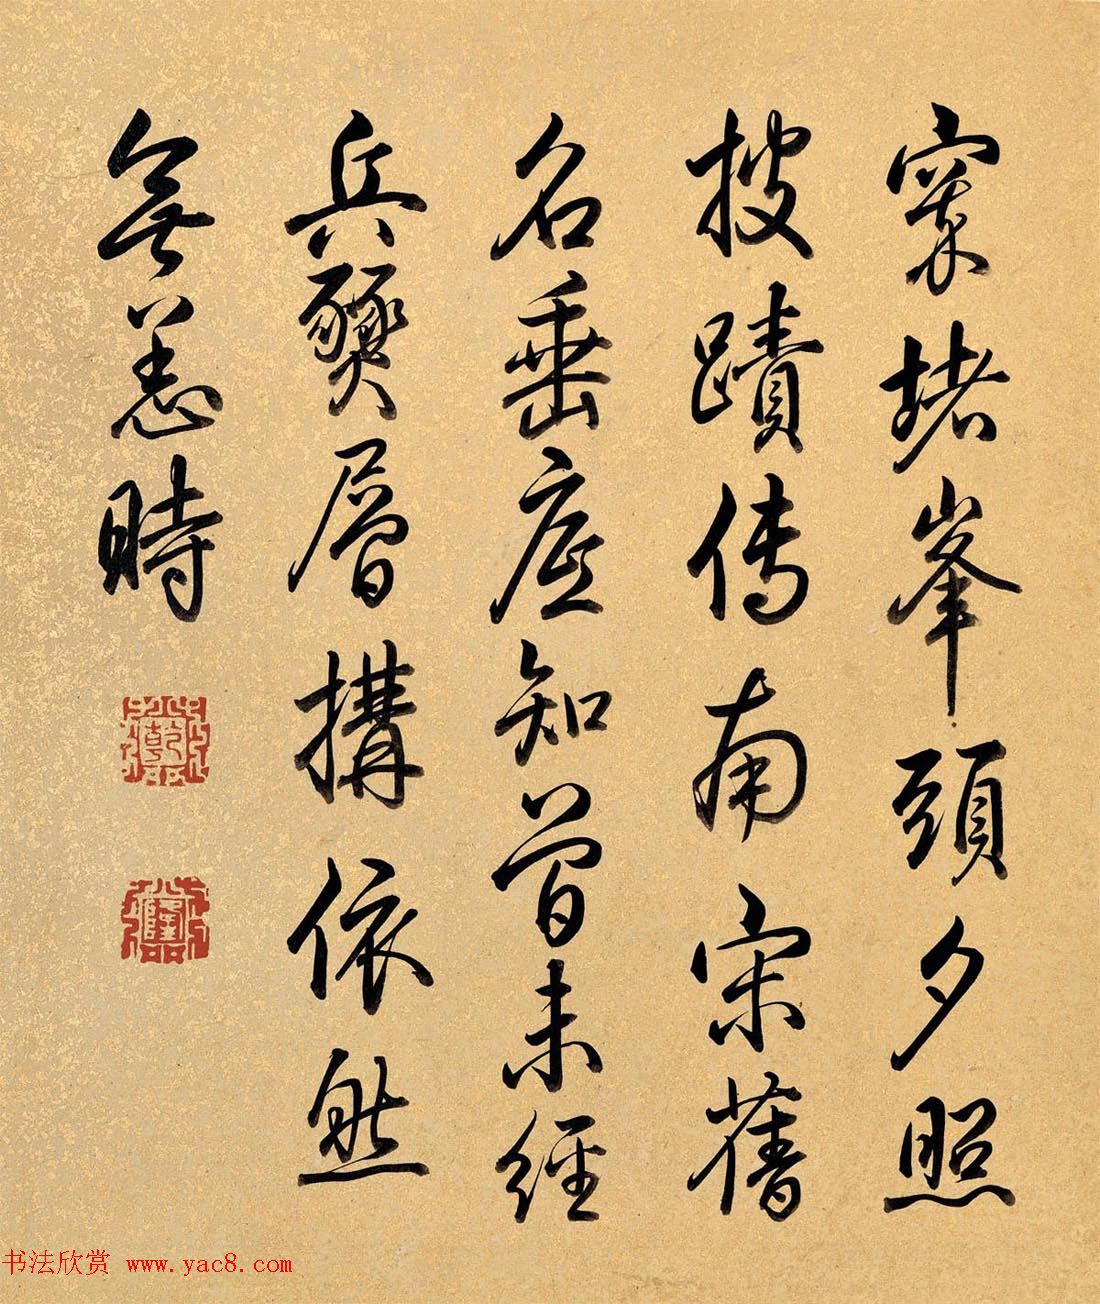 窣堵峯頭夕照
披蹟傳南宋舊
名垂底知曾未經
兵燹層搆依然
無恙時
乾
隆
书法欣赏 www.yac8.com